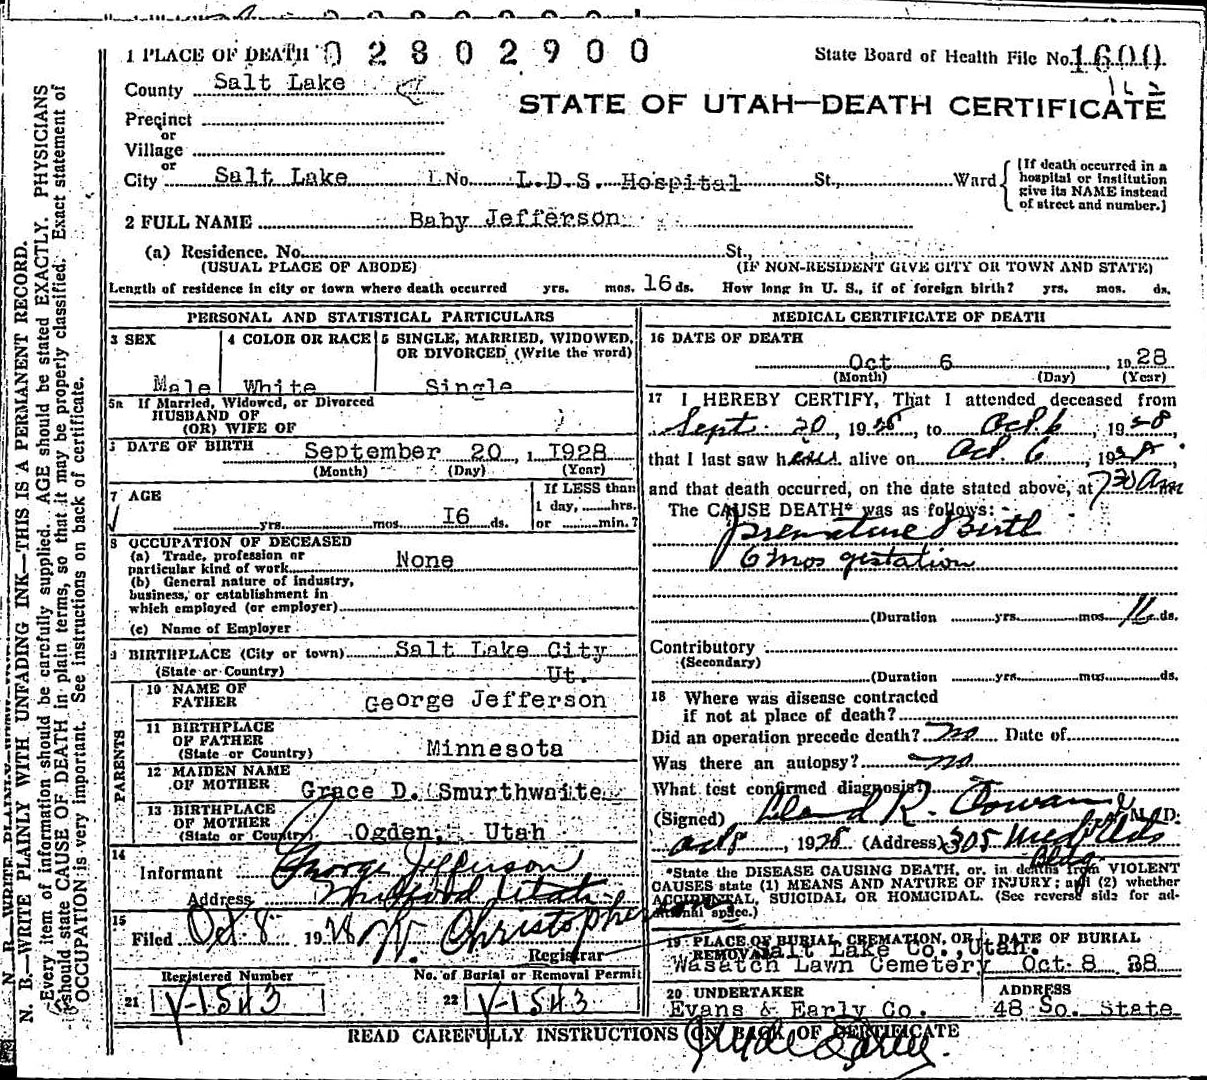 1 PLACE OF DEATH 02802900 State Board of Health File No. 1600
County Salt Lake
162
STATE OF UTAH—DEATH CERTIFICATE
Precinct
or
Village
or
City Salt Lake No. L.D.S. Hospital St., Ward
(If death occurred in a hospital or institution give its NAME instead of street and number.)
2 FULL NAME Baby Jefferson
(a) Residence. No. St.,
(USUAL PLACE OF ABODE) (IF NON-RESIDENT GIVE CITY OR TOWN AND STATE)
Length of residence in city or town where death occurred yrs. mos. 16 ds. How long in U. S., if of foreign birth? yrs. mos. ds.
PERSONAL AND STATISTICAL PARTICULARS
3 SEX Male
4 COLOR OR RACE White
5 SINGLE, MARRIED, WIDOWED, OR DIVORCED (Write the word) Single
5a If Married, Widowed, or Divorced
HUSBAND OF
(OR) WIFE OF
DATE OF BIRTH September 20, 1928
(Month) (Day) (Year)
7 AGE
yrs. mos. 16 ds.
If LESS than
1 day, hrs.
or min.?
8 OCCUPATION OF DECEASED
(a) Trade, profession or
particular kind of work None
(b) General nature of industry,
business, or establishment in
which employed (or employer)
(c) Name of Employer
9 BIRTHPLACE (City or town) Salt Lake City
(State or Country) Ut.
PARENTS
10 NAME OF
FATHER George Jefferson
11 BIRTHPLACE
OF FATHER
(State or Country) Minnesota
12 MAIDEN NAME
OF MOTHER Grace D. Smurthwaite
13 BIRTHPLACE
OF MOTHER
(State or Country) Ogden, Utah
14
Informant George Jefferson
Address Midford Utah
15
Filed Oct 8 1928 W. Christopherson
Registrar
Registered Number No. of Burial or Removal Permit
21 V-1543 22 V-1543
MEDICAL CERTIFICATE OF DEATH
16 DATE OF DEATH
Oct 6 1928
(Month) (Day) (Year)
17 I HEREBY CERTIFY, That I attended deceased from
Sept. 20, 1928, to Oct. 6, 1928
that I last saw h alive on Oct. 6, 1928
and that death occurred, on the date stated above, at 730 AM
The CAUSE DEATH* was as follows:
Premature Birth
6 mos gestation
(Duration yrs. mos. 16 ds.
Contributory
(Secondary)
(Duration yrs. mos. ds.
18 Where was disease contracted
if not at place of death?
Did an operation precede death? no Date of
Was there an autopsy? no
What test confirmed diagnosis?
(Signed) Leland R. Cowan M. D.
Oct 8, 1928 (Address) 305 Med Arts
Bldg
*State the DISEASE CAUSING DEATH, or, in deaths from VIOLENT
CAUSES state (1) MEANS AND NATURE OF INJURY; and (2) whether
ACCIDENTAL, SUICIDAL OR HOMICIDAL. (See reverse side for additional space.)
19 PLACE OF BURIAL, CREMATION, OR REMOVAL DATE OF BURIAL
Salt Lake Co., Utah.
Wasatch Lawn Cemetery Oct 8 1928
20 UNDERTAKER ADDRESS
Evans & Early Co. 48 So. State
READ CAREFULLY INSTRUCTIONS ON BACK OF CERTIFICATE
Clyde Early.
N. B.—WRITE PLAINLY WITH UNFADING INK—THIS IS A PERMANENT RECORD.
Every item of information should be carefully supplied. AGE should be stated EXACTLY. PHYSICIANS
should state CAUSE OF DEATH in plain terms, so that it may be properly classified. Exact statement of
OCCUPATION is very important. See instructions on back of certificate.